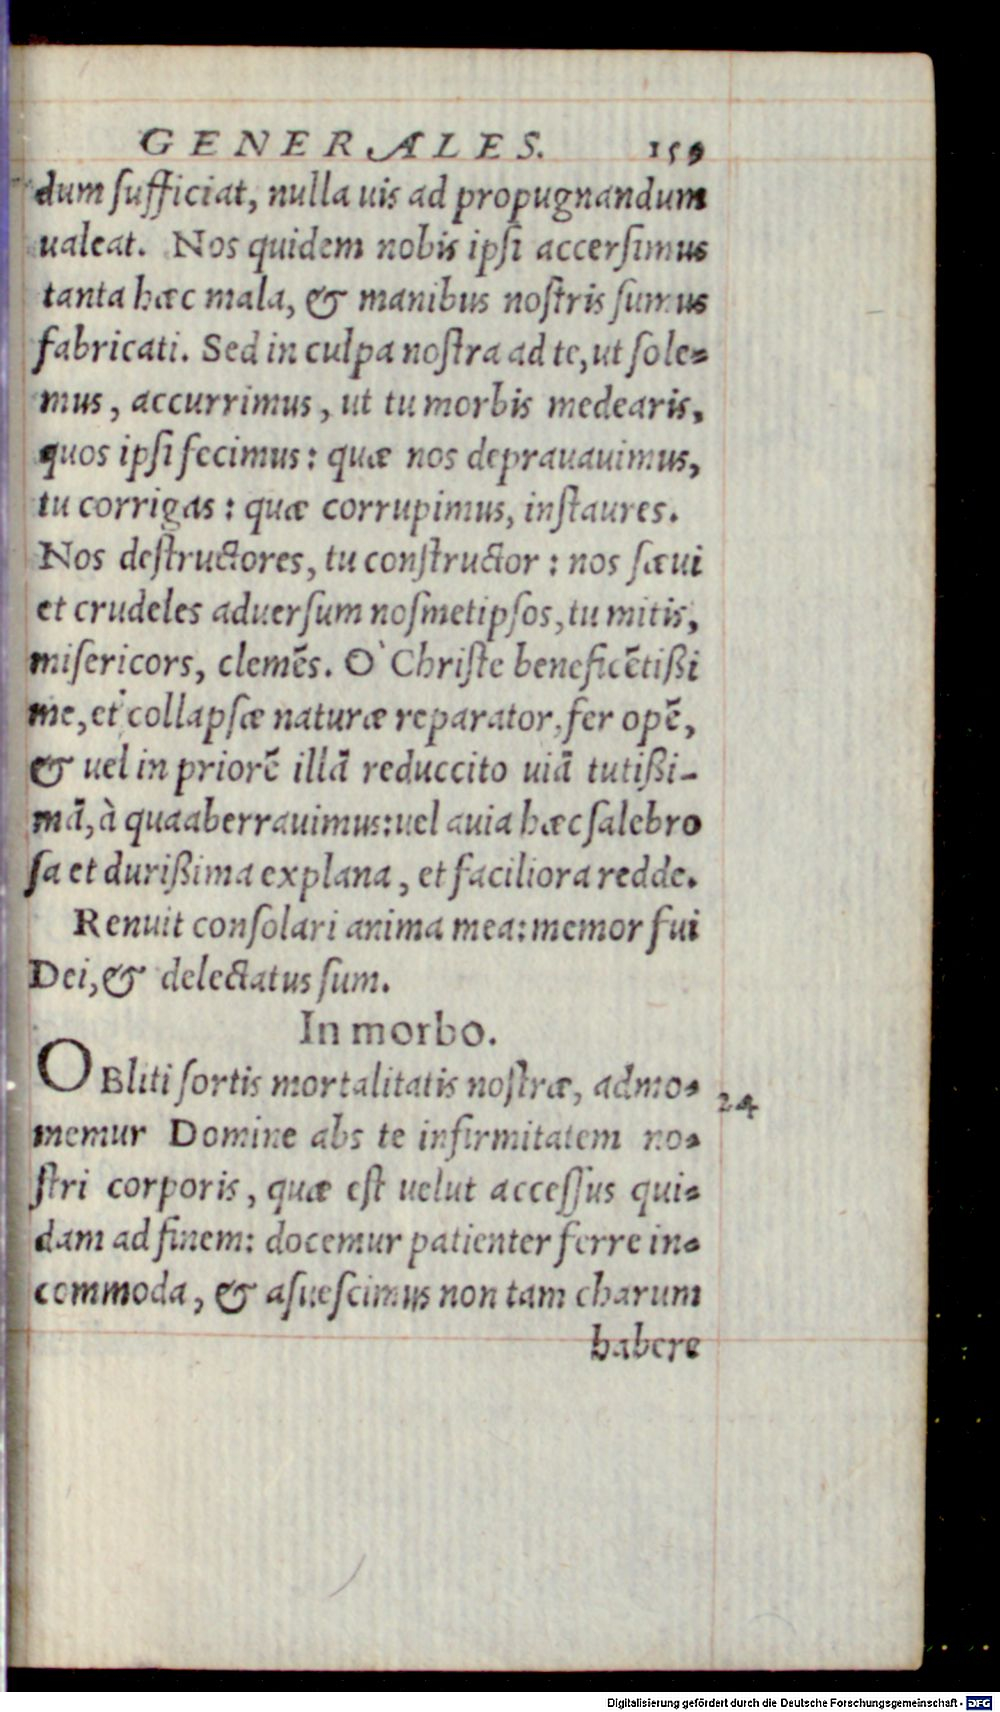 GENERALES. 159
dum ſufficiat, nulla uis ad propugnandum
ualeat. Nos quidem nobis ipſi accerſimus
tanta hæc mala, & manibus noſtris ſumus
fabricati. Sed in culpa noſtra ad te, ut ſole⸗
mus, accurrimus, ut tu morbis medearis,
quos ipſi fecimus: quæ nos deprauauimus,
tu corrigas: quæ corrupimus, inſtaures.
Nos deſtructores, tu conſtructor: nos ſæui
et crudeles aduerſum noſmetipſos, tu mitis,
miſericors, clemẽs. Ò Chriſte beneficẽtißi
me, et collapſæ naturæ reparator, fer opẽ,
& uel in priorẽ illã reduccito uiã tutißi-
mã, à qua aberrauimus: uel auia hæc ſalebro
ſa et durißima explana, et faciliora redde.
Renuit conſolari anima mea: memor fui
Dei, & delectatus ſum.
In morbo.
OBliti ſortis mortalitatis noſtræ, admo⸗ 24
memur Domine abs te infirmitatem no⸗
ſtri corporis, quæ eſt uelut acceſſus qui⸗
dam ad finem: docemur patienter ferre in⸗
commoda, & aſueſcimus non tam charum
habere
Digitalisierung gefördert durch die Deutsche Forschungsgemeinschaft - DFG